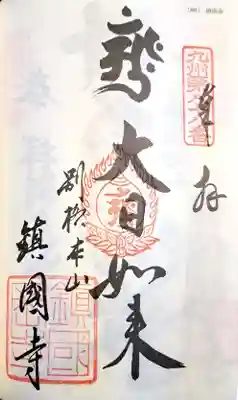 九州第八十八番
奉拝
大日如来
別格本山
鎮國寺